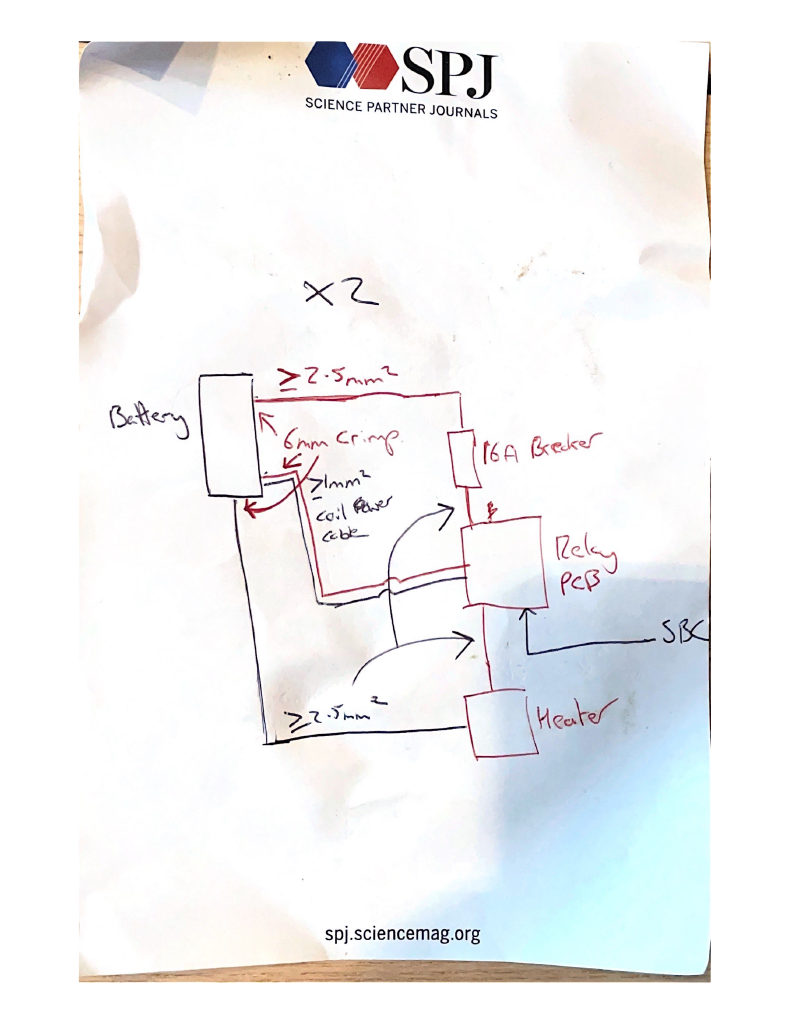 SPJ
SCIENCE PARTNER JOURNALS
×2
≥2.5mm²
Battery
6mm Crimp
16A Breaker
≥1mm²
coil Power
cable
Relay
PCB
SBC
≥2.5mm²
Heater
spj.sciencemag.org